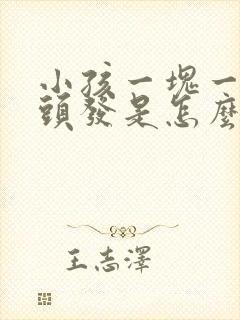 小孩一塊一
頭發是怎麼
王志澤